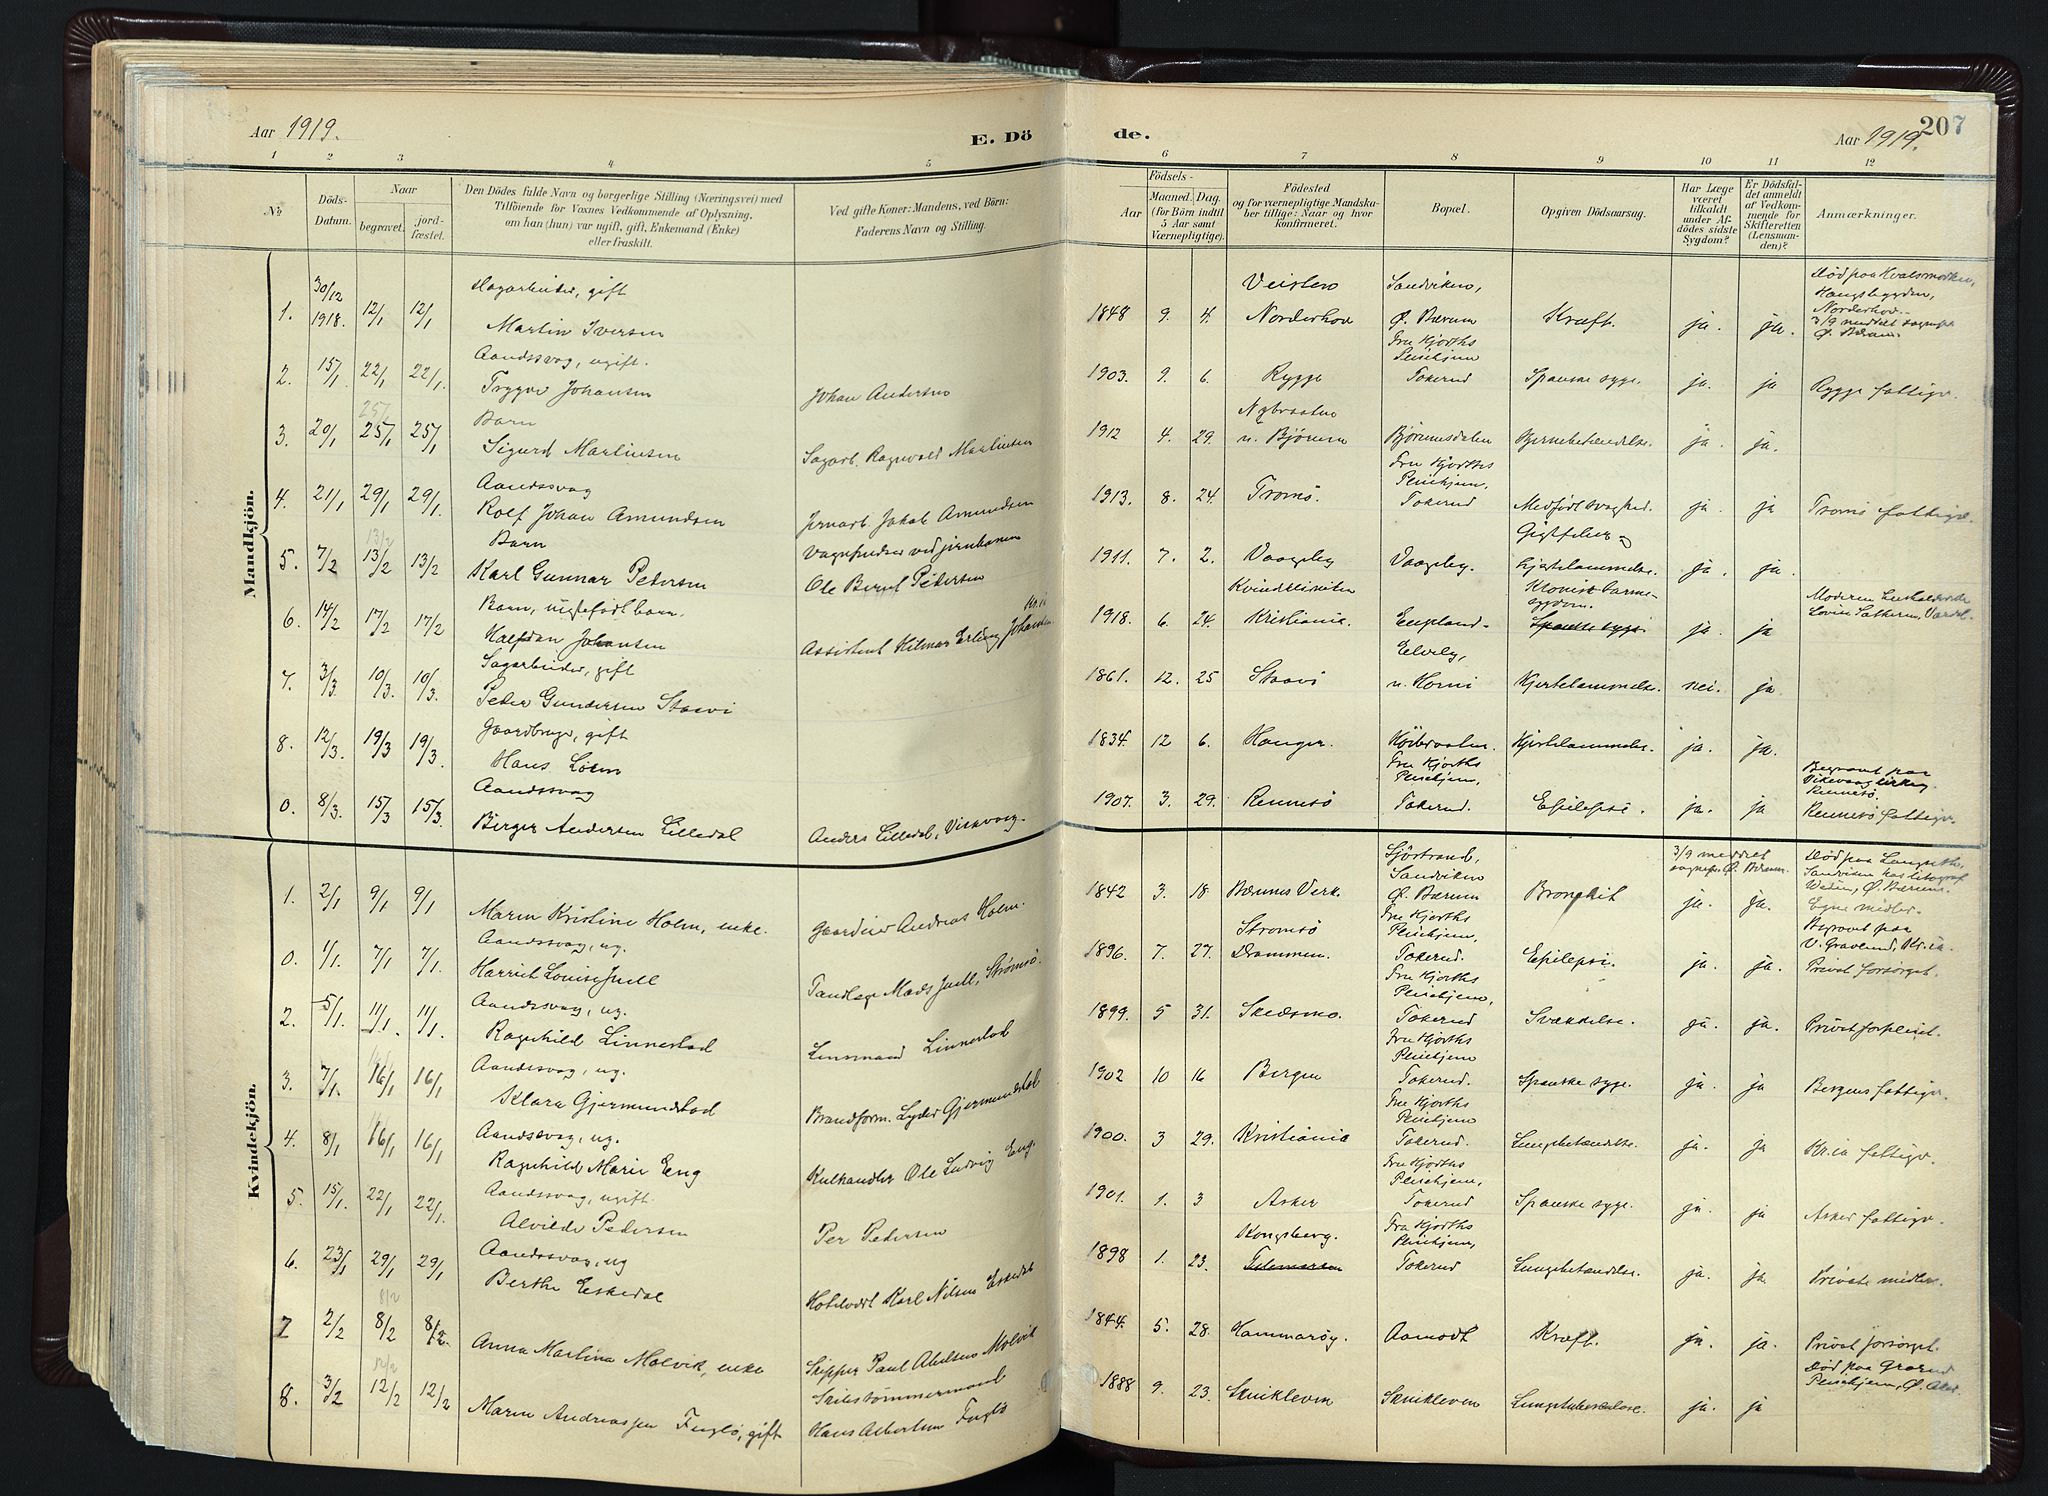 Aar 1919.
E. Dö
1 2 3 4 5
№
Döds-Datum.
Naar
begravet.
jord-fæstet.
Den Dödes fulde Navn og borgerlige Stilling (Næringsvei) med
Tilföiende for Voxnes Vedkommende af Oplysning,
om han (hun) var ugift, gift, Enkemand (Enke)
eller fraskilt.
Ved gifte Koner: Mandens, ved Börn:
Faderens Navn og Stilling.
Mandkjön.
30/12 Hagarbeider, gift
1. 1918. 12/1 12/1 Martin Iversen
Aandssvag, ugift.
2. 15/1 22/1 22/1. Trygve Johansen Johan Andersen
25/1
Barn
3. 20/1 25/1 25/1 Sigurd Martinsen Sagarb. Ragnvald Martinsen
Aandssvag
4. 21/1 29/1 29/1 Rolf Johan Amundsen Jernarb. Jakob Amundsen
13/2
Barn Vognfusker ved jernbanen
5. 7/2 13/2 13/2 Karl Gunnar Petersen Ole Bernt Petersen
Barn, uegtefødt barn. Kr.ia
6. 14/2 17/2 17/2 Halfdan Johansen Assistent Hilmar Erling Johansen
Sagarbeider, gift
7. 3/3 10/3. 10/3. Peder Gundersen Staavi
Gaardbruger, gift
8. 12/3. 19/3 19/3. Hans Løken
Aandssvag
0. 8/3. 15/3 15/3. Birger Andersen Lilledal Anders Lilledal, Vikevaag.
Kvindekjön.
1. 2/1 9/1 9/1 Maren Kristine Holm, enke. Gaardeier Andreas Holm.
Aandssvag, ug.
0. 1/1. 7/1 7/1. Harriet Louise Juell Tandlæge Mads Juell, Strømsø.
Aandssvag, ug.
2. 5/1. 11/1. 11/1. Ragnhild Linnestad Lensmand Linnestad
Aandssvag, ug.
3. 7/1. 16/1 16/1 Klara Gjermundstad Brandform. Lyder Gjermundstad
Aandssvag, ug.
4. 8/1 16/1 16/1 Ragnhild Marie Eng Kulhandler Ole Ludvig Eng.
Aandssvag, ugift.
5. 15/1. 22/1 22/1. Alvilde Pedersen Per Pedersen
Aandssvag, ug
6. 23/1 29/1 29/1 Berthe Eskedal Hotelvært Karl Nilsen Eskedal
8/2
7 2/2 8/2 8/2. Anna Martina Molvik, enke Skipper Paul Abelsen Molvik
12/2
Skibstømmermand
8. 3/2 12/2 12/2 Maren Andreassen Fuglø, gift Hans Albertsen Fuglø
de.
Aar 1919.
207
6 7 8 9 10 11 12
Födsels-
Aar
Maaned. Dag.
(for Börn indtil
5 Aar samt
Værnepligtige).
Födested
og for værnepligtige Mandska-
ber tillige: Naar og hvor
konfirmeret.
Bopæl.
Opgiven Dödsaarsag.
Har Læge
været
tilkaldt
under Af-
dödes sidste
Sygdom?
Er Dödsfal-
det anmeldt
af Vedkom-
mende for
Skifteretten
(Lensman-
den)?
Anmærkninger.
Veisten Sandviken, Død paa Kvalsmarken,
Haugsbygden,
1848 9. 4. Norderhov Ø. Bærum Kræft. ja. ja. Norderhov.
3/9 meddelt sognepr. Ø. Bærum.
Fru Hjorths
Pleiehjem
1903. 9. 6. Rygge Tokerud Spanske syge. ja. ja Rygge fattigv.
Nybraaten
1912 4. 29. u. Bjørum Bjørumsdalen Hjernebetændelse. ja. ja.
Fru Hjorths
Pleiehjem,
1913. 8. 24. Tromsö. Tokerud Medfödt svaghed. ja ja Troms fattigv.
Gigtfeber og
1911. 7. 2. Vaageby Vaageby. Hjertelammelse. ja. ja.
Kvindeklinikken Kronisk tarmsygdom. Moderen
1918. 6 24. Kristiania. Enpland. Spanske syge. ja. ja
Elvely,
1861. 12. 25 Staavi u. Horni Hjertelammelse. nei. ja
1834. 12 6. Hanger. Hjertelammelse. ja. ja.
Fru Hjorths Begravet paa
Pleiehjem, Vikevaag kirkeg.
Rennesö
1907. 3. 29. Rennesö Tokerud. Epilepsi ja. ja Rennesö fattigv.
Sjöstrand, 3/9 meddelt Død paa
Sandviken sognepr. Ø. Bærum. Sandviken hos Litograf
1842 3. 18. Bærums Verk. Ø. Bærum Bronkit ja. ja. Ø. Bærum.
Egne midler.
Strømsö Fru Hjorths Begravet paa
Pleiehjem, V. Gravlund, Kr.ia.
1896. 7. 27. Drammen. Tokerud. Epilepsi. ja. ja. Privat forsörget.
Fru Hjorths
Pleiehjem,
1899. 5 31. Skedsmo. Tokerud Svækkelse. ja. ja. Privat forpleiet.
Fru Hjorths
Pleiehjem
1902 10 16 Bergen Tokerud. Spanske syge. ja. ja Bergens fattigv.
Fru Hjorths
Pleiehjem
1900. 3 29. Kristiania Tokerud. Lungebetændelse. ja. ja Kr.ia fattigv.
Fru Hjorths
Pleiehjem,
1901. 1. 3 Asker Tokerud Spanske syge. ja. ja Asker fattigv.
Kongsberg. Fru Hjorths
Pleiehjem,
1898 1. 23. Telemarken Tokerud Lungebetændelse. ja. ja. Private midler.
1844. 5. 28. Hammarög. Aamodt Kræft. ja. ja. Privat forsörget.
Død paa Grorud
Pleiehjem, Ø. Aker.
1888 9. 23. Skuikleven Skuikleven Lungetuberkulose. ja. ja